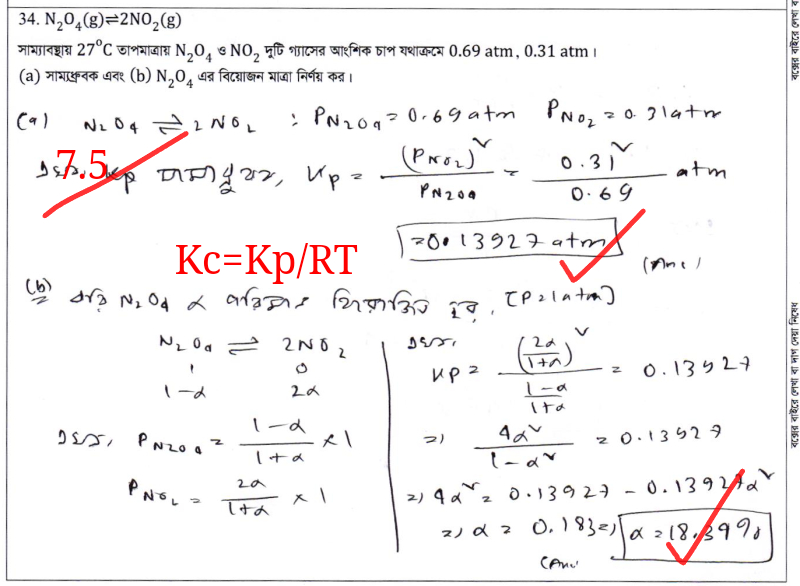 34. N₂O₄(g)⇌2NO₂(g)
সাম্যাবস্থায় 27⁰C তাপমাত্রায় N₂O₄ ও NO₂ দুটি গ্যাসের আংশিক চাপ যথাক্রমে 0.69 atm, 0.31 atm।
(a) সাম্যধ্রুবক এবং (b) N₂O₄ এর বিয়োজন মাত্রা নির্ণয় কর।
(a) N₂O₄ ⇌ 2NO₂ : P_N₂O₄ = 0.69 atm P_NO₂ = 0.31 atm
7.5
Kp সাম্যধ্রুবক, Kp = (P_NO₂)²/P_N₂O₄ = 0.31²/0.69 atm
= 0.13927 atm
(Ans)
Kc=Kp/RT
(b) ধরি N₂O₄ α পরিমাণ বিয়োজিত হয়, [P=1atm]
N₂O₄ ⇌ 2NO₂
1 0
1-α 2α
P_N₂O₄ = (1-α)/(1+α) × 1
P_NO₂ = 2α/(1+α) × 1
Kp = (2α/(1+α))² / ((1-α)/(1+α)) = 0.13927
=) 4α²/(1-α²) = 0.13927
=) 4α² = 0.13927 - 0.13927α²
=) α = 0.183 =) α = 18.399%
(Ans)
বক্সের বাইরে লেখা বা দাগ দেয়া নিষেধ